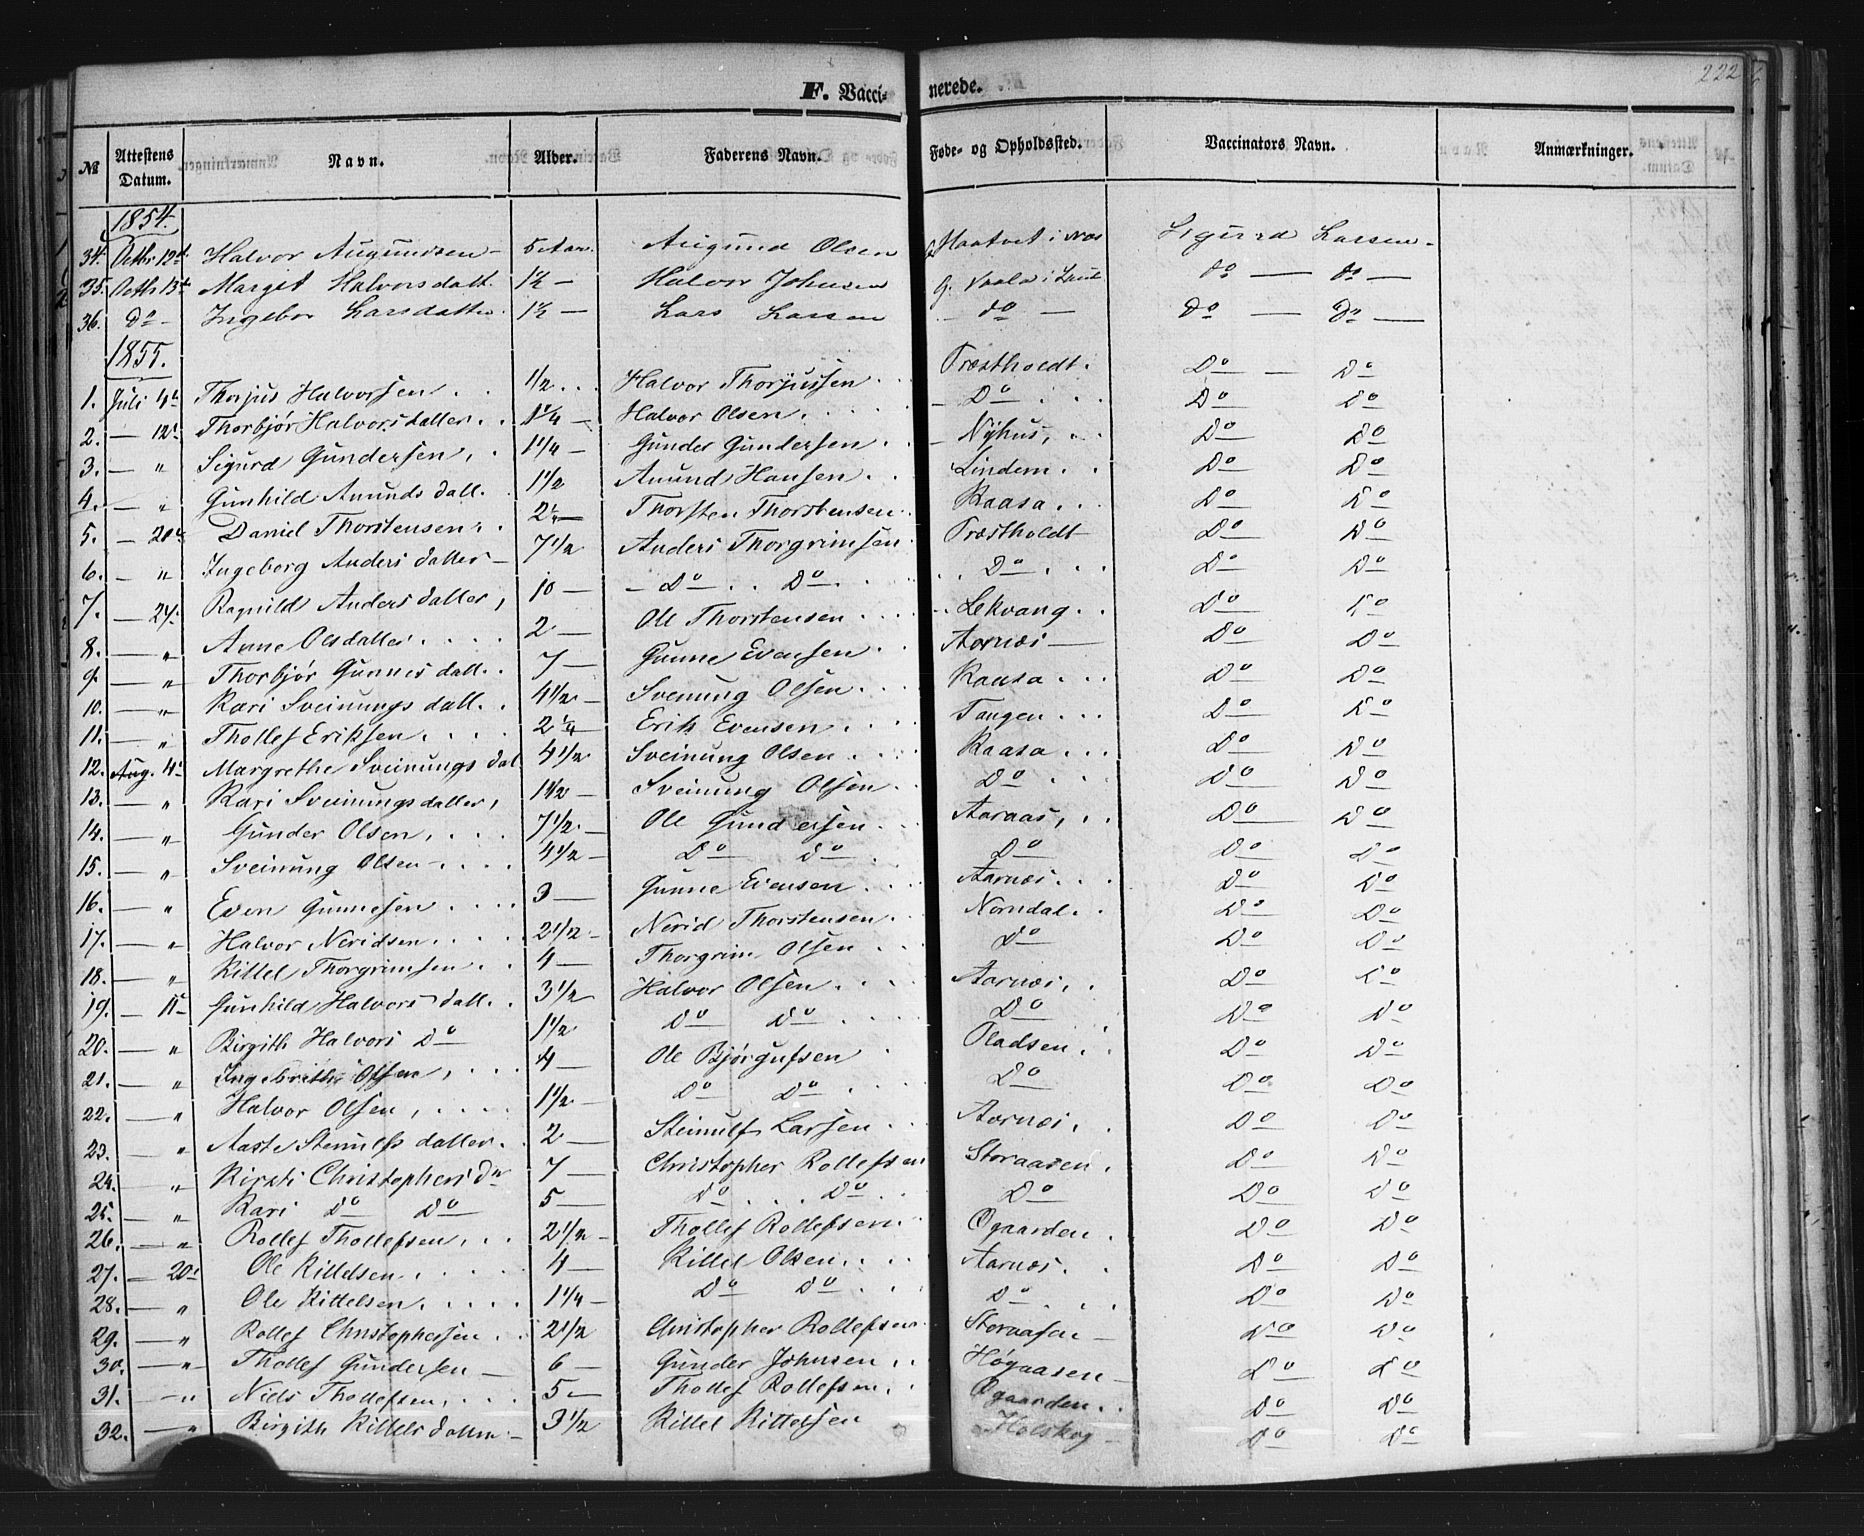 222
F. Vaccinerede.
№ Attestens Datum. Navn. Alder. Faderens Navn. Føde- og Opholdssted. Vaccinators Navn. Anmærkninger.
1854.
34. Octbr 12te Halvor Augundsen – 5 Aar. Augund Olsen Haatvet i Næs Sigurd Larsen –
35. Octb 13de Margit Halvorsdatt. 1½ – Halvor Johnsen G. Vaala i do – do –
36. Do – Ingebor Larsdatter 1½ – Lars Larsen – do – Do – Do –
1855.
1. Juli 4de Thorjus Halvorsen . . 1/2 . . . Halvor Thorjussen . . Træstholdt . Do – Do
2. – 12te Thorbjør Halvorsdatter . . 1¼ – Halvor Olsen . . . . – Do . . . Do Do
3. – " Sigurd Gundersen, . 1¼ – Gunder Gundersen . . – Nyhus, . . Do Do
4. – " Gunhild Anunds datt. . 1½ Anund Hansen . . Lindem . . Do Do
5. – 20de Daniel Thorstensen . . 2¼ – Thorsten Thorstensen . Raasa . . . Do Do
6. – " Ingeborg Anders datter – 7½ Anders Thorgrimsen . Træstholdt – Do Do
7. – 24. Ragnild Anders datter, 10 – – Do . . Do . . . . Do . . . Do Do
8. – " Anne Olsdatter . . . . 2 – Ole Thorstensen . . . . Lekvang . . Do Do
9. – " Thorbjør Gunnes datt. . 7 – Gunne Evensen . . Aarnæs – Do Do
10. – " Kari Sveinungs datt. . 4½ – Svenung Olsen . . . Raasa . . . Do Do
11. – " Thollef Eriksen . . . . 2¼ Erik Evensen . . . Tangen . . . Do Do
12. Aug. 4de Margrethe Sveinungs dat 4½ Sveinung Olsen . . Raasa . . . Do Do
13. – " Kari Sveinungsdatter, 1½ – Sveinung Olsen . . Do . . Do Do
14. – " Gunder Olsen, . . . . 7½ – Ole Gundersen . . Aaraas, . . Do Do
15. – " Sveinung Olsen – . . . 4½ – Do Do . Do Do Do
16. – " Even Gunnesen . . . . 3 – Gunne Evensen . . . Aarnæs . . . Do Do
17. – " Halvor Neridsen . . . . 2½ – Nerid Thorstensen . . Norndal . . Do Do
18. – " Kittel Thorgrimsen . . 4 – Thorgrim Olsen . . . Do Do Do
19. – 11te Gunhild Halvors datt. . 3½ Halvor Olsen . . . . Aarnæs, . Do Do
20. – " Birgith Halvors Do 1½ Do Do . . . . Do Do Do
21. – " Ingebrith Olsen, . . . 4 – Ole Bjørgufsen . Oladsen . . Do Do
22. – " Halvor Olsen, . . . . 1½ – Do Do . . . Do Do Do
23. – " Aaste Steinulfs datter . . 2 – Steinulf Larsen . . . Aarnæs, . Do Do
24. – " Kirsti Christophers Dr 7 – Christopher Rollefsen Storaasen . Do Do
25. – " Kari Do Do 5 – Do . . . . Do . . Do Do Do
26. – " Rollef Thollefsen, . . 2½ – Thollef Rollefsen . . Øgaarden . Do Do
27. – 20de Ole Kittelsen . . . . . 4 – Kittel Olsen . . . . Aarnæs . . Do Do
28. – " Ole Kittelsen . . . . . 1¼ – Do Do . . . . Do . . . Do Do
29. – " Rollef Christophersen . . 2½ Christopher Rollefsen . Storaasen – Do Do
30. – " Thollef Gundersen – 6 – Gunder Johnsen, . . Høgaasen – Do Do
31. – " Niels Thollefsen, . . . 5 – Thollef Rollefsen, . . Øgaarden . . Do Do
32. – " Birgith Kittels datter – 3½ Kittel Kittelsen Holskog – Do Do